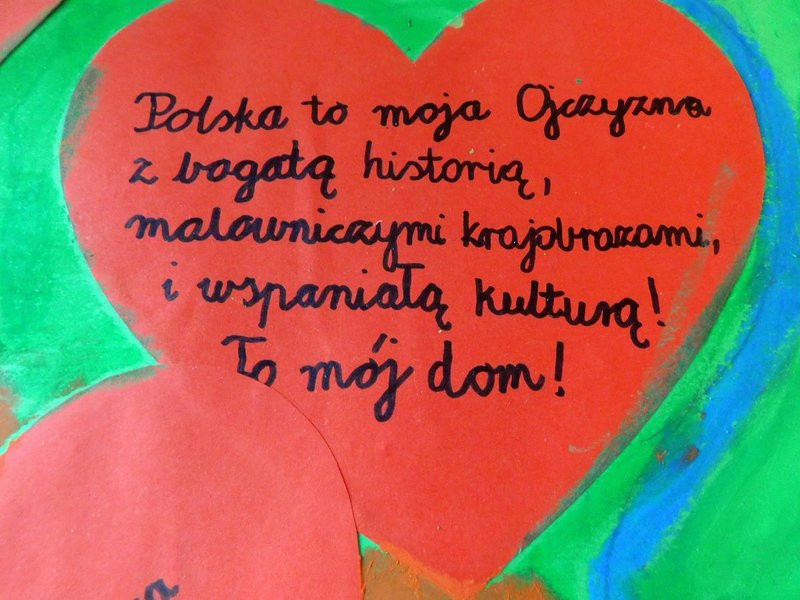 Polska to moja Ojczyzna
z bogatą historią,
malowniczymi krajobrazami,
i wspaniałą kulturą!
To mój dom!